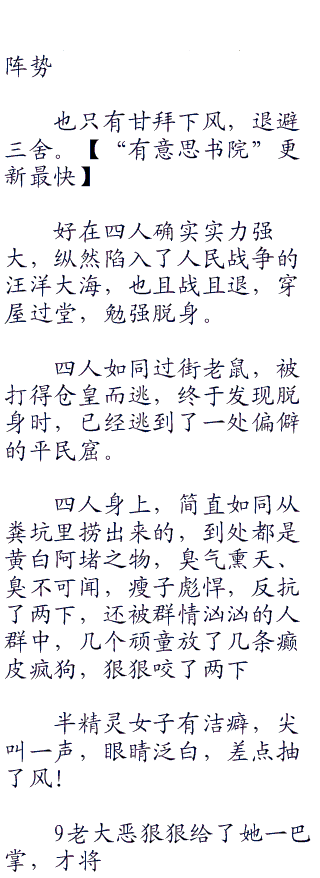 阵势
也只有甘拜下风，退避
三舍。【“有意思书院”更
新最快】
好在四人确实实力强
大，纵然陷入了人民战争的
汪洋大海，也且战且退，穿
屋过堂，勉强脱身。
四人如同过街老鼠，被
打得仓皇而逃，终于发现脱
身时，已经逃到了一处偏僻
的平民窟。
四人身上，简直如同从
粪坑里捞出来的，到处都是
黄白阿堵之物，臭气熏天、
臭不可闻，瘦子彪悍，反抗
了两下，还被群情汹汹的人
群中，几个顽童放了几条癞
皮疯狗，狠狠咬了两下
半精灵女子有洁癖，尖
叫一声，眼睛泛白，差点抽
了风！
9老大恶狠狠给了她一巴
掌，才将